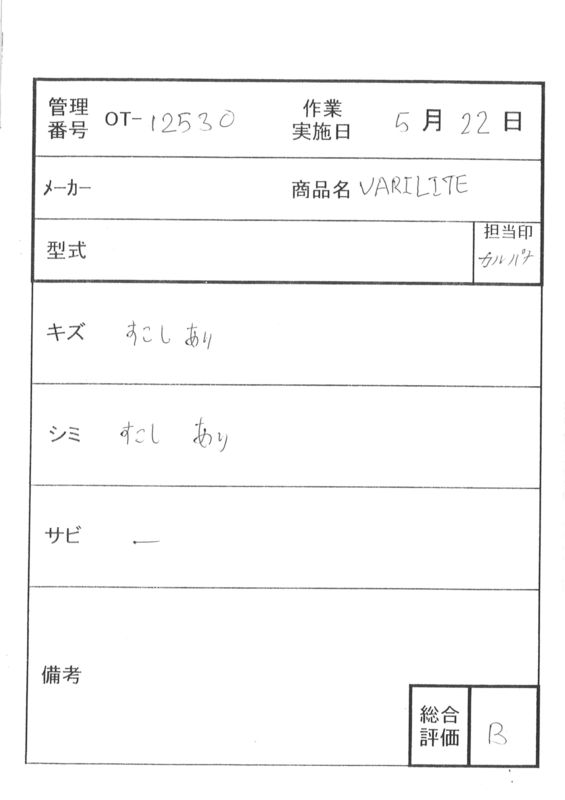 管理番号 OT-12530 作業実施日 5月22日
メーカー 商品名 VARILITE
型式 担当印 カルパナ
キズ すこしあり
シミ すこし あり
サビ ー
備考
総合評価 B